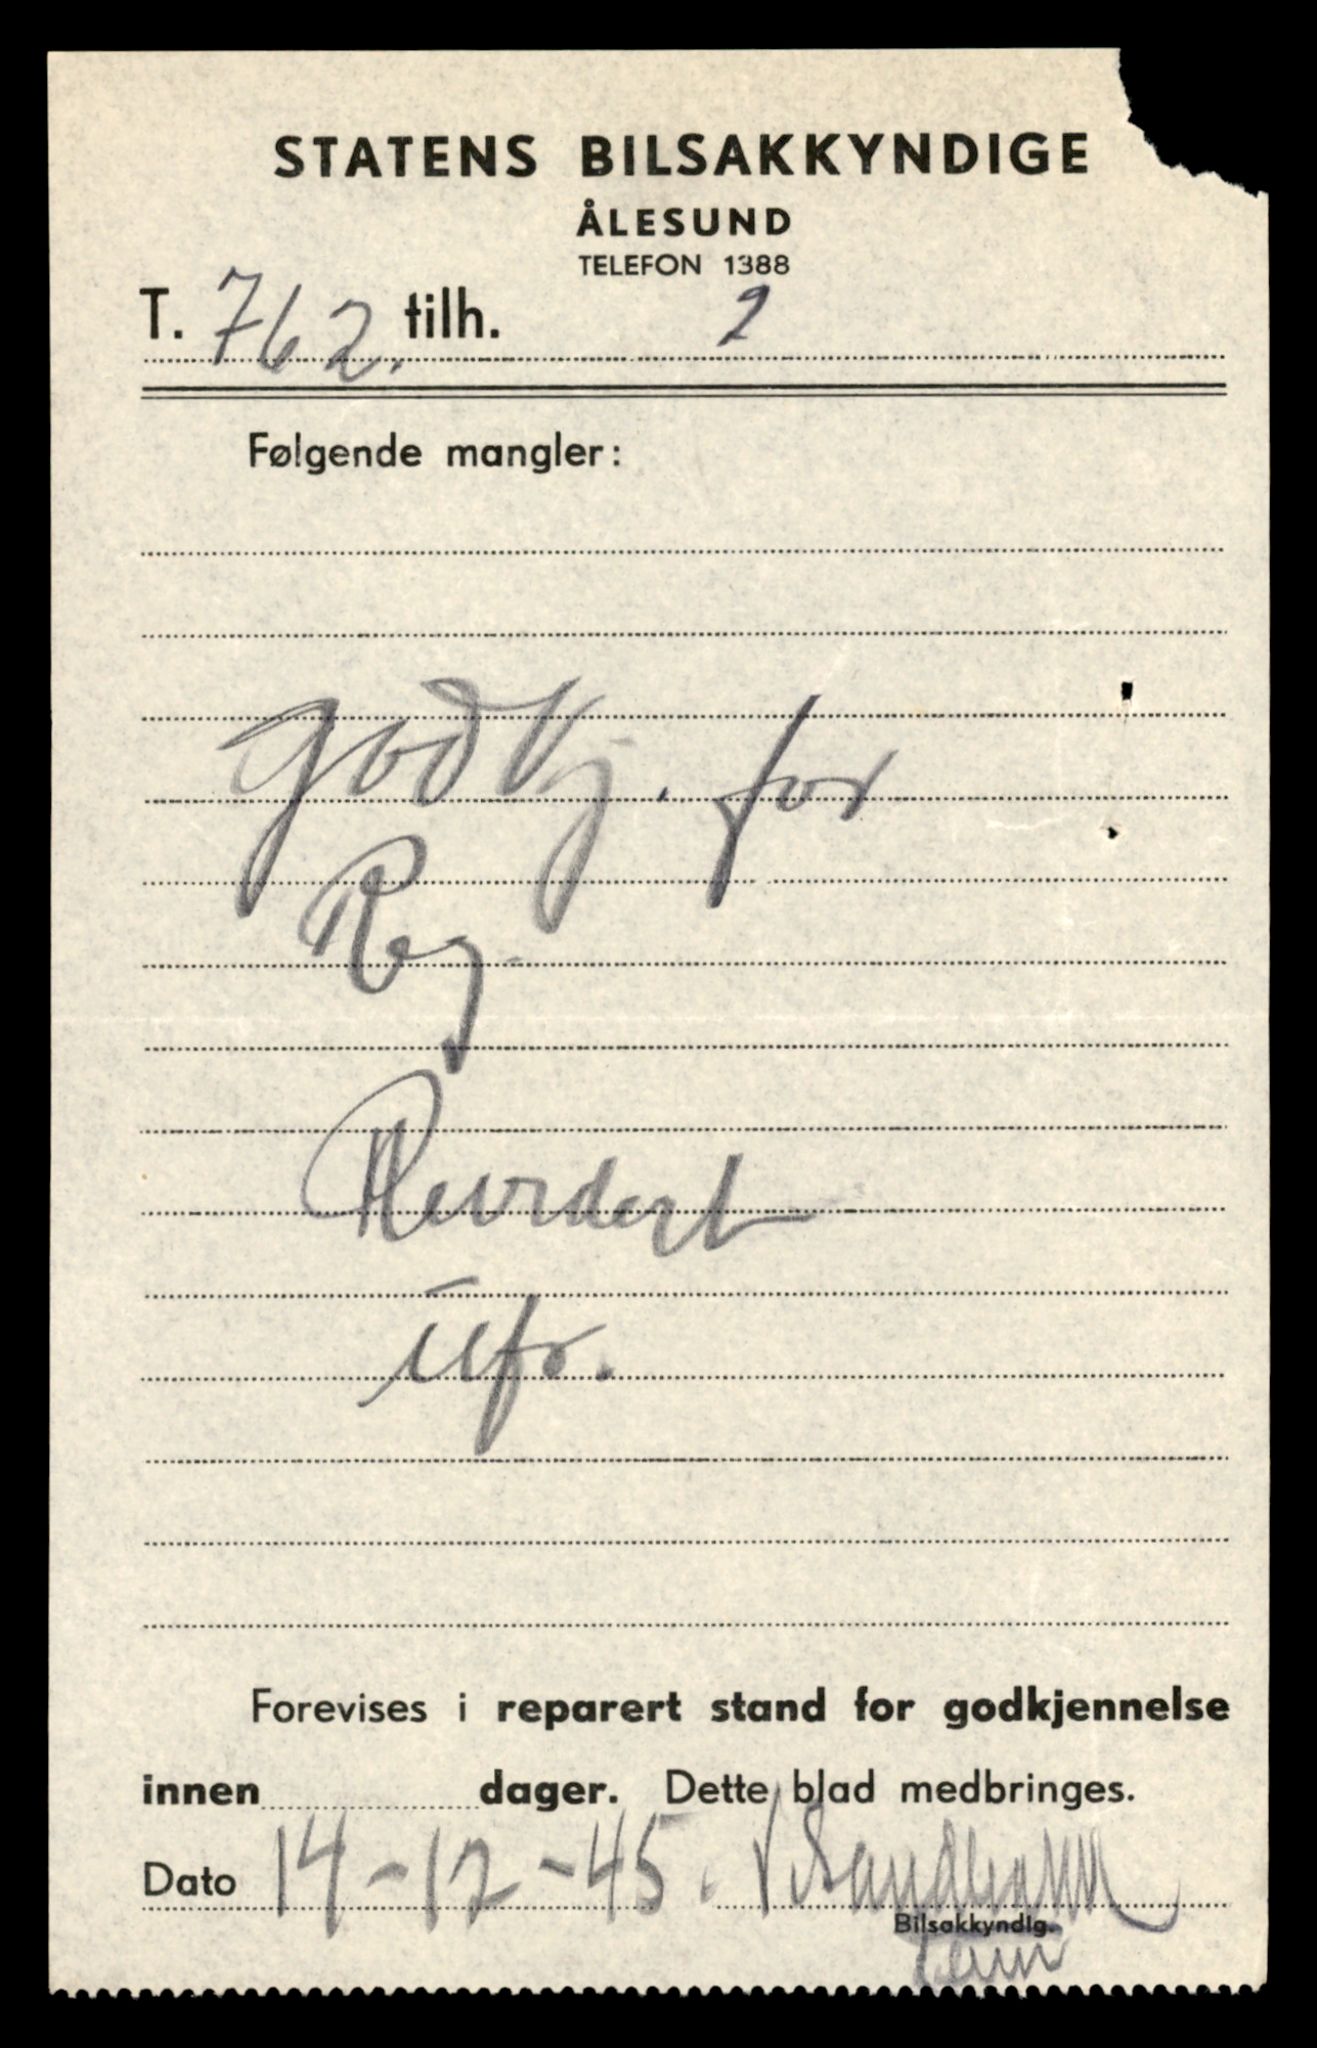 STATENS BILSAKKYNDIGE
ÅLESUND
TELEFON 1388
T. 762. tilh. 2
Følgende mangler:
Godkj. for
Reg.
Revidert
Forevises i reparert stand for godkjennelse
innen dager. Dette blad medbringes.
Dato 14-12-45.
Bilsakkyndig.